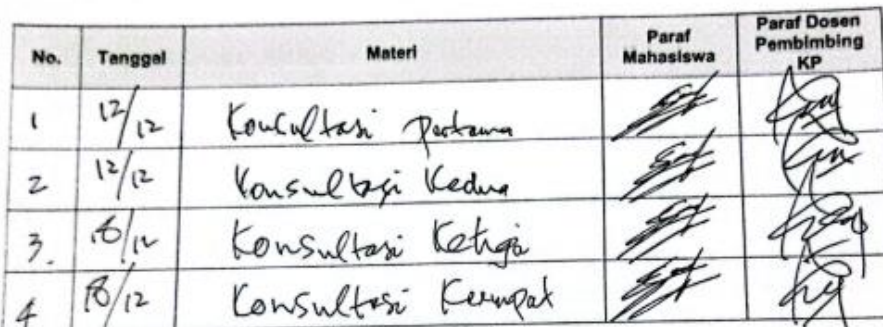 No. Tanggal Materi Paraf Mahasiswa Paraf Dosen Pembimbing KP
1 12/12 Konsultasi Pertama
2 12/12 Konsultasi Kedua
3. 18/12 Konsultasi Ketiga
4 18/12 Konsultasi Keempat